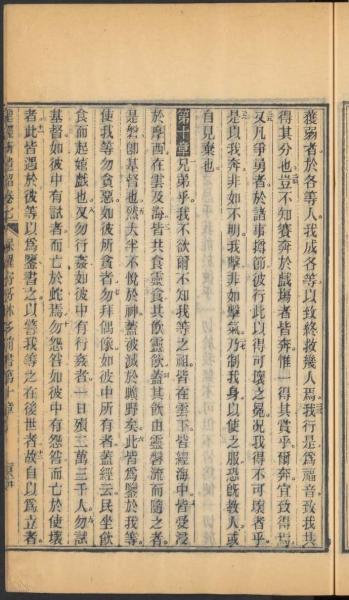 獲弱者於各等人我成各等以致終救幾人焉我行是爲福音致我共
得其分也豈不知賽奔於戲場者皆奔惟一得其賞乎爾奔宜致得焉
又凡爭勇者於諸事撙節彼行此以得可壞之冕況我得不可壞者乎
是以我奔非如不明我擊非如擊氣乃制我身以使之服恐旣教人或
自見棄也
第十章兄弟乎我不欲爾不知我等之祖皆在雲下皆經海中皆受浸
於摩西在雲及海皆共食靈食共飲靈飲蓋其飲由靈磐流而隨之者
是磐卽基督也然夫半不悅於神蓋被滅於曠野矣此皆爲鑒於我等
使我等勿貪惡如彼所貪者勿拜偶像如彼中所有者蓋經云民坐飲
食而起嬉戲也又勿行姦如彼中有行姦者一日殞二萬三千人勿試
基督如彼中有試者而亡於蛇焉勿怨咎如彼中有怨咎而亡於使壞
者此皆遇於彼等以爲鑒書之以警我等之在後世者故自以爲立者